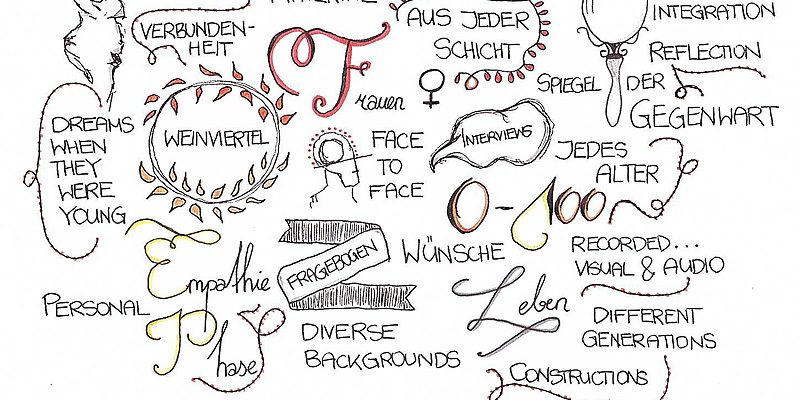 VERBUNDEN-
HEIT
Frauen
AUS JEDER
SCHICHT
INTEGRATION
REFLECTION
SPIEGEL DER
GEGENWART
DREAMS
WHEN
THEY
WERE
YOUNG
WEINVIERTEL
FACE
TO
FACE
INTERVIEWS
JEDES
ALTER
0-100
Empathie
Phase
PERSONAL
FRAGEBOGEN
WÜNSCHE
RECORDED...
VISUAL & AUDIO
Leben
DIVERSE
BACKGROUNDS
DIFFERENT
GENERATIONS
CONSTRUCTIONS